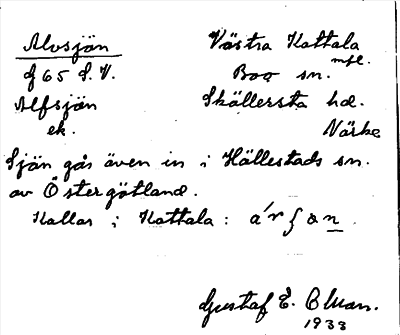 Alvsjön Västra Kattala mfl.
f 65 S.V. Boo sn.
Alfsjön Skällersta hd.
ek. Närke
Sjön går även in i Hällestads sn.
av Östergötland.
Kallas i Kattala:
Gustaf E. Ohlan.
1933